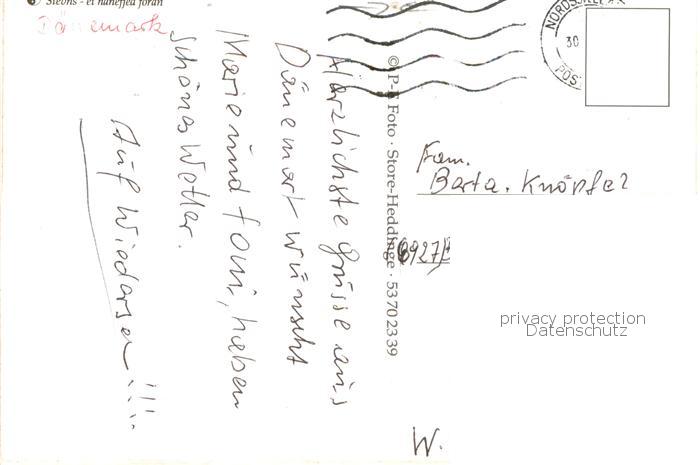 Stevns - et hunefjed foran
Dänemark
Härzlichste Grüsse aus
Dänemark wünscht
Mario und Foni, haben
schönes Wetter.
Auf Wiedersen!!!
© P-E Foto · Store-Heddinge · 53702339
30
Fam.
Berta. Knöpfel
8927
W.
privacy protection
Datenschutz